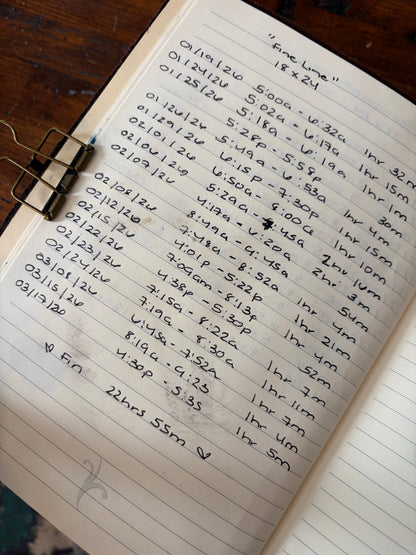 "Fine Line"
18 x 24
01/19/26 5:00a - 6:32a 1hr 32m
01/24/26 5:02a - 6:17a 1hr 15m
01/25/26 5:18a - 6:19a 1hr 1m
5:28p - 5:58p 30m
01/26/26 5:49a - 6:53a 1hr 4m
01/29/26 6:15p - 7:30p 1hr 15m
02/01/26 6:50a - 8:00a 1hr 10m
02/06/26 5:29a - 7:45a 2hr 16m
02/07/26 4:17a - 6:20a 2hr 3m
8:49a - 9:43a 54m
02/08/26 7:48a - 8:52a 1hr 4m
02/12/26 4:01p - 5:22p 1hr 21m
02/15/26 7:09am - 8:13a 1hr 4m
02/22/26 4:38p - 5:30p 52m
02/23/26 7:15a - 8:22a 1hr 7m
02/24/26 7:19a - 8:30a 1hr 11m
03/08/26 6:45a - 7:52a 1hr 7m
03/15/26 8:19a - 9:23 1hr 4m
03/17/26 4:30p - 5:35 1hr 5m
♥ Fin 22hrs 55m ♥